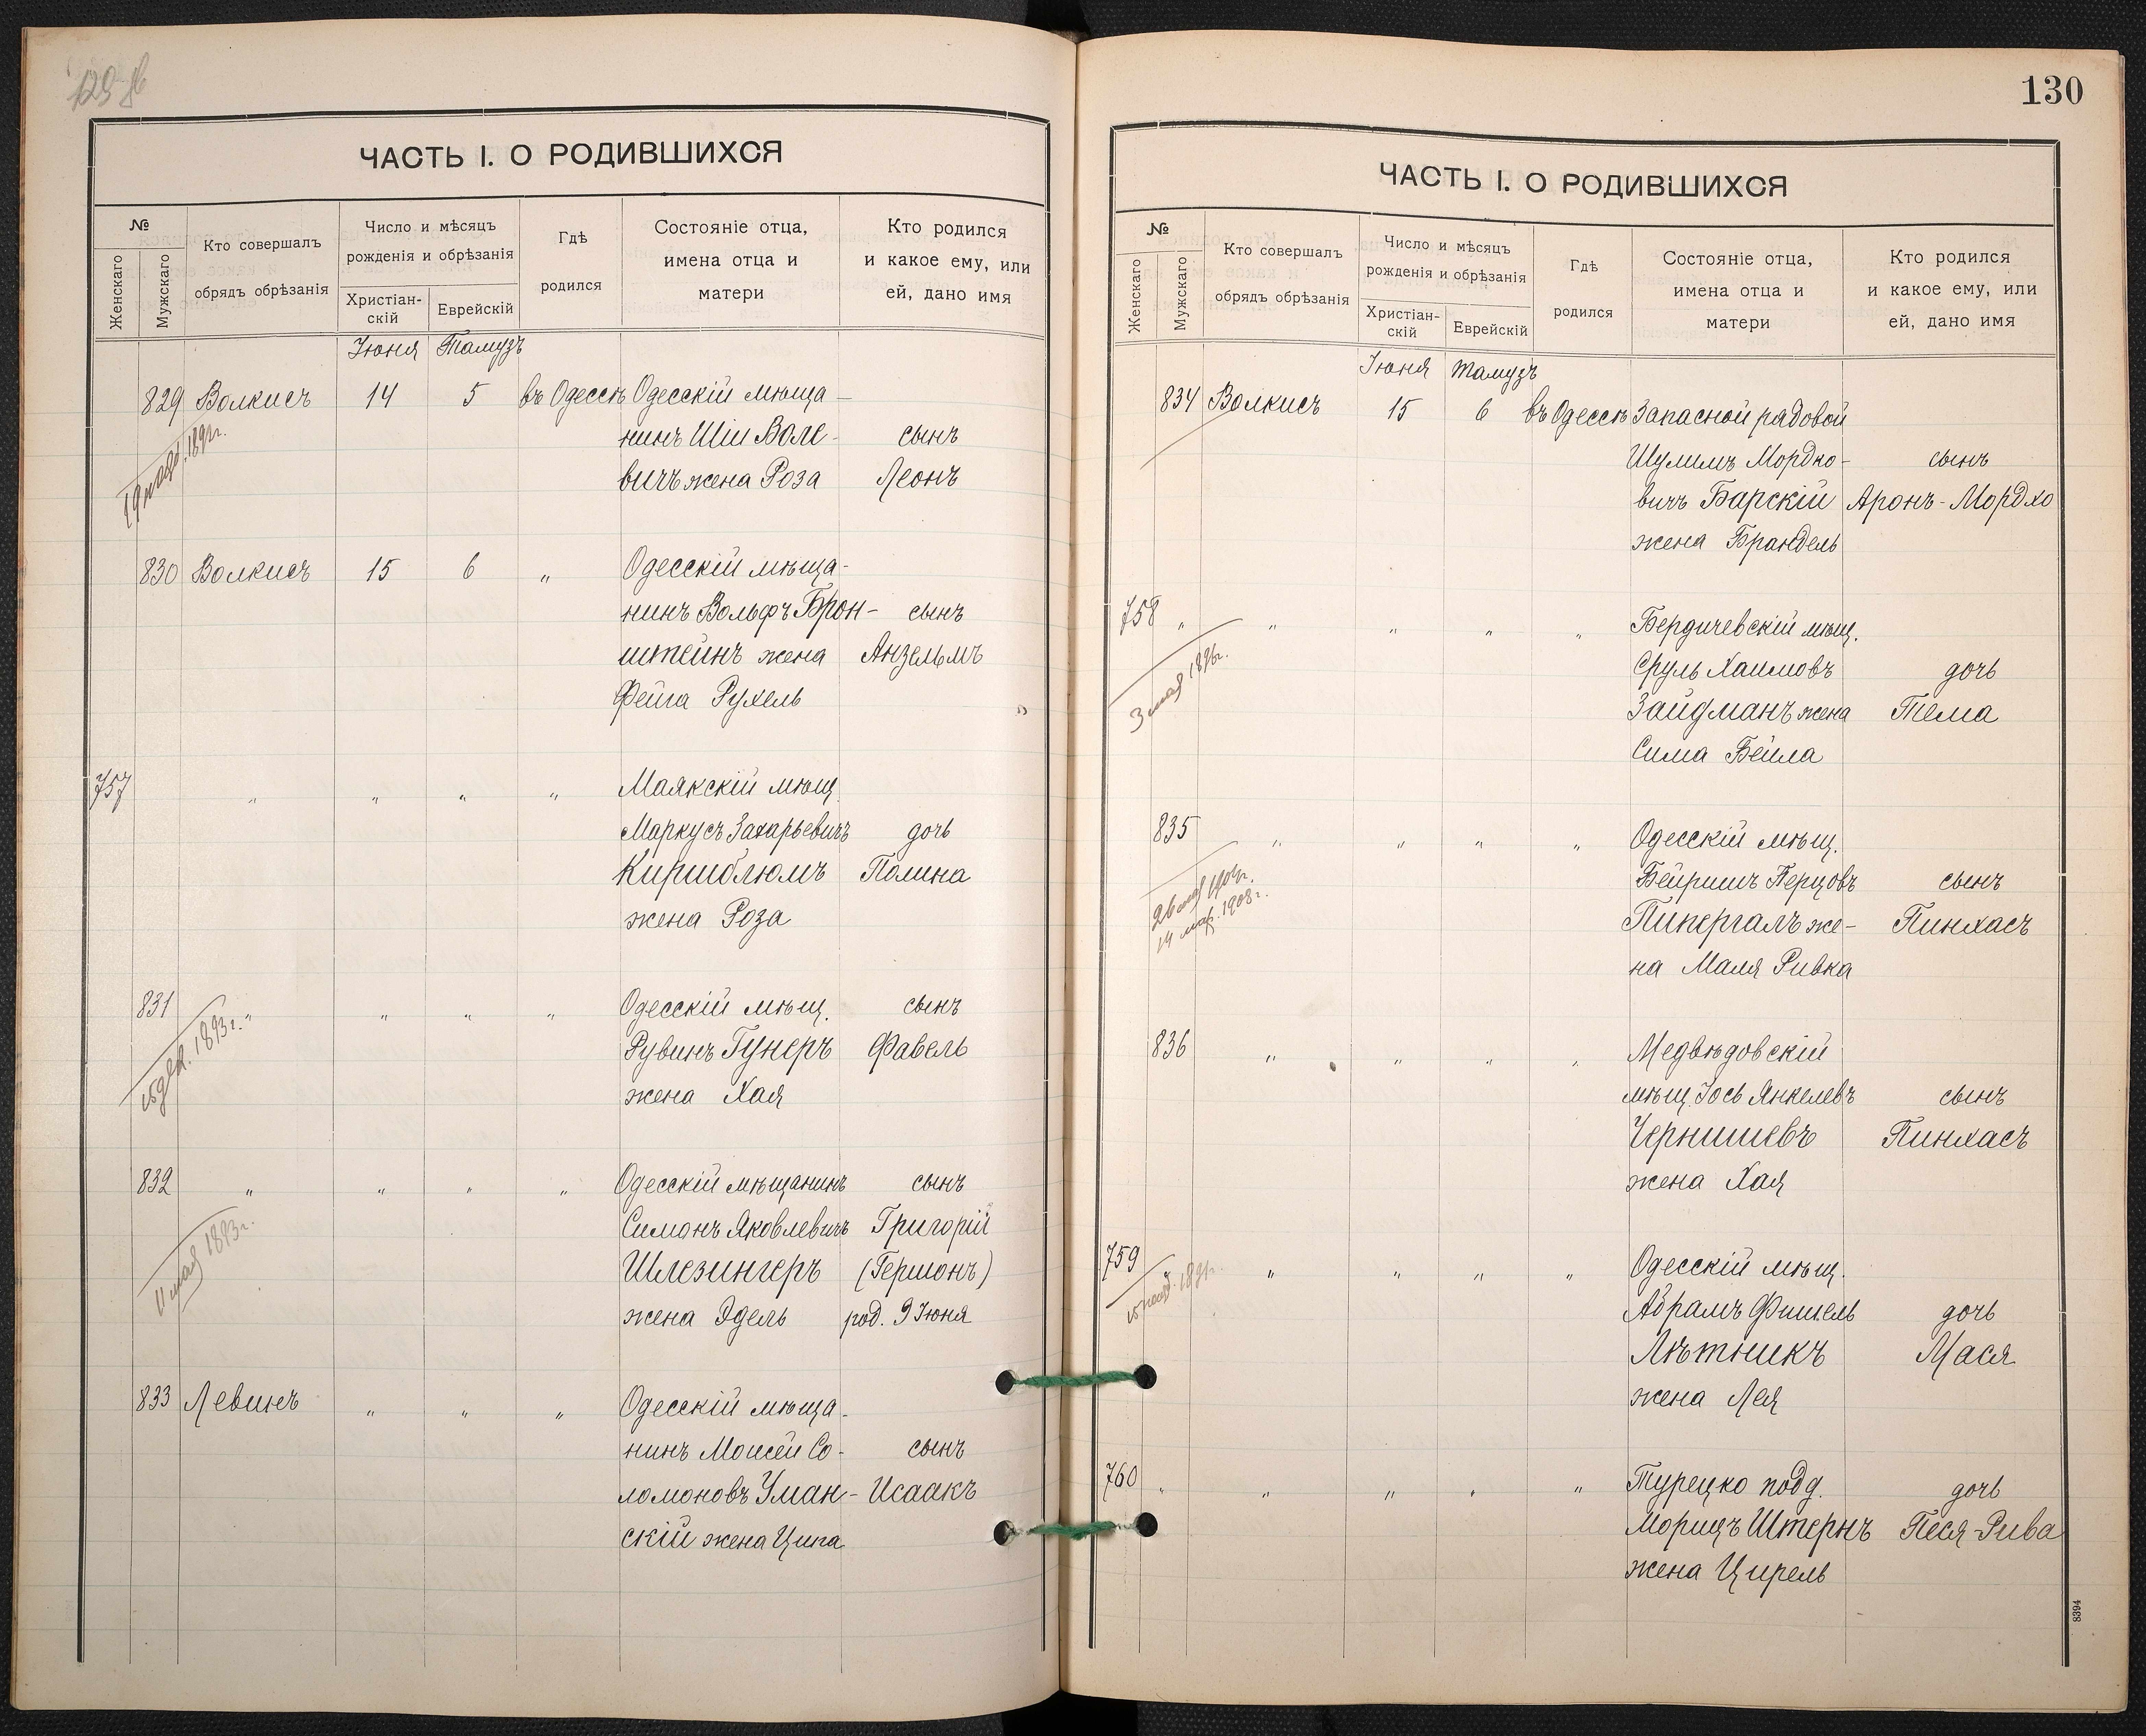 130
ЧАСТЬ I. О РОДИВШИХСЯ
№
Женскаго
Мужскаго
Кто совершалъ
обрядъ обрѣзанія
Число и мѣсяцъ
рожденія и обрѣзанія
Христіан-
скій
Еврейскій
Гдѣ
родился
Состояніе отца,
имена отца и
матери
Кто родился
и какое ему, или
ей, дано имя
Іюня Тамузъ
829 Волкисъ 14 5 въ Одессѣ Одесскій мѣща-
нинъ Шіи Воле- сынъ
вичъ жена Роза Леонъ
830 Волкисъ 15 6 „ Одесскій мѣща-
нинъ Вольфъ Брон- сынъ
штейнъ жена Анзельмъ
Фейга Рухель
757 „ „ „ „ Маякскій мѣщ.
Маркусъ Захарьевичъ дочь
Киршблюмъ Полина
жена Роза
831 „ „ „ „ Одесскій мѣщ. сынъ
Рувинъ Гунеръ Фавель
жена Хая
1893 г.
832 „ „ „ „ Одесскій мѣщанинъ сынъ
Симонъ Яковлевичъ Григорій
Шлезингеръ (Гершонъ)
жена Эдель род. 9 Іюня
11 мая 1893 г.
833 Левинъ „ „ „ Одесскій мѣща-
нинъ Моисей Со- сынъ
ломоновъ Уман- Исаакъ
скій жена Ципа
ЧАСТЬ I. О РОДИВШИХСЯ
№
Женскаго
Мужскаго
Кто совершалъ
обрядъ обрѣзанія
Число и мѣсяцъ
рожденія и обрѣзанія
Христіан-
скій
Еврейскій
Гдѣ
родился
Состояніе отца,
имена отца и
матери
Кто родился
и какое ему, или
ей, дано имя
Іюня Тамузъ
834 Волкисъ 15 6 въ Одессѣ Запасной рядовой
Шулимъ Мордко- сынъ
вичъ Барскій Аронъ-Мордхо
жена Брандель
758 „ „ „ „ „ Бердичевскій мѣщ.
Сруль Хаимовъ дочь
Зайдманъ жена Тема
Сима Бейла
3 мая 1896 г.
835 „ „ „ „ Одесскій мѣщ.
Бейришъ Перцовъ сынъ
Пипергалъ же- Пинхасъ
на Маля Ривка
14 мар. 1908 г.
836 „ „ „ „ Медвѣдовскій
мѣщ. Іось Янкелевъ сынъ
Чернишевъ Пинхасъ
жена Хая
759 „ „ „ „ „ Одесскій мѣщ.
Абрамъ Фишель дочь
Лѣтникъ Мася
жена Лея
760 „ „ „ „ „ Турецко подд. дочь
Морицъ Штернъ Песя-Рива
жена Цирель
8394